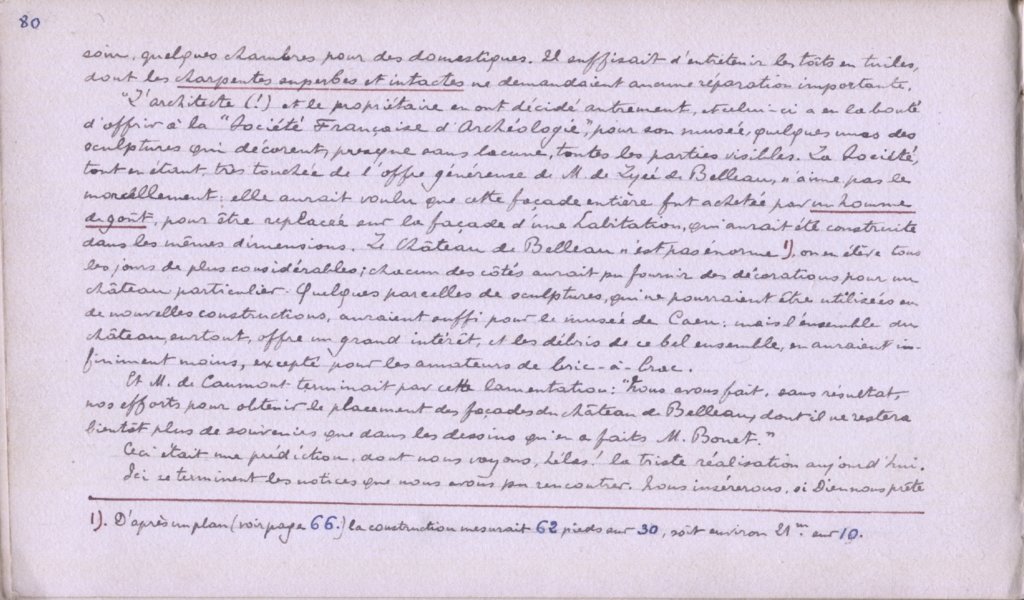 80
soin, quelques chambres pour des domestiques. Il suffisait d'entretenir les toits en tuiles,
dont les charpentes superbes et intactes ne demandaient aucune réparation importante.
"L'architecte (!) et le propriétaire en ont décidé autrement, et celui-ci a eu la bonté
d'offrir à la "Société Française d'Archéologie", pour son musée, quelques unes des
sculptures qui décorent, presque sans lacune, toutes les parties visibles. La Société,
tout en étant très touchée de l'offre généreuse de M. de Lyée de Belleau, n'aime pas le
morcellement: elle aurait voulu que cette façade entière fut achetée par un homme
de goût, pour être replacée sur la façade d'une habitation, qui aurait été construite
dans les mêmes dimensions. Le Château de Belleau n'est pas énorme 1), on en élève tous
les jours de plus considérables; chacun des côtés aurait pu fournir des décorations pour un
château particulier. Quelques parcelles de sculptures, qui ne pourraient être utilisées en
de nouvelles constructions, auraient suffi pour le musée de Caen; mais l'ensemble du
château, surtout, offre un grand intérêt, et les débris de ce bel ensemble, en auraient in-
finiment moins, excepté pour les amateurs de bric-à-brac.
Et M. de Caumont terminait par cette lamentation: "Nous avons fait, sans résultat,
nos efforts pour obtenir le placement des façades du château de Belleau, dont il ne restera
bientôt plus de souvenirs que dans les dessins qu'en a faits M. Bouet."
Ceci était une prédiction, dont nous voyons, hélas! la triste réalisation aujourd'hui.
Ici se terminent les notices que nous avons pu rencontrer. Nous insérerons, si Dieu nous prête
1). D'après un plan (voir page 66.) la construction mesurait 62 pieds sur 30, soit environ 21m. sur 10.